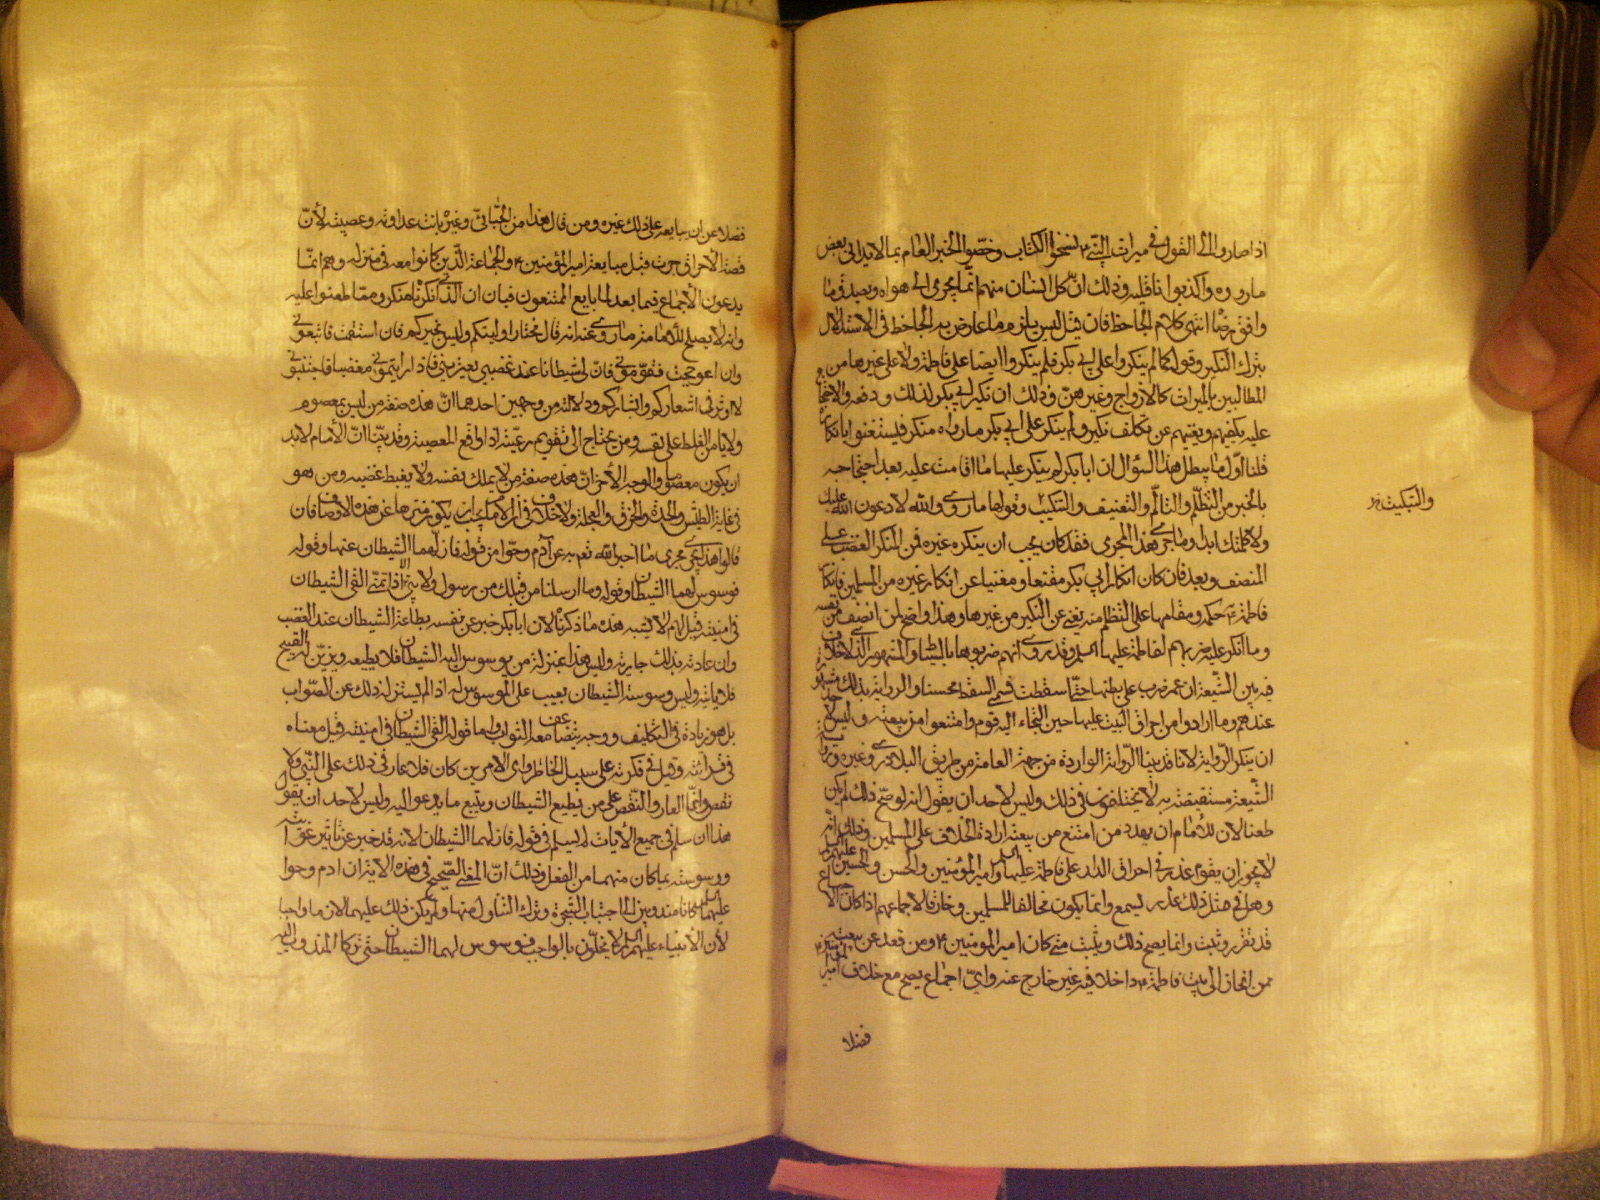 اذا صاروا الى القول في ميراث النبي نسخوا الكتاب وخصّوا الخبر العام بما لا يداني بعض
ما ردوه واكذبوا ناقليه وذلك انّ كل انسان منهم انما يجرى الى هواه ويصدق ما
وافق رضاه انتهى كلام الجاحظ فان قيل ليس يلزم ما عارض به الجاحظ في الاستدلال
بترك النكير وقوله كما لم ينكروا على ابي بكر فلم ينكروا ايضا على فاطمة ولا على غيرها من
المطالبين بالميراث كالازواج وغيرهن وذلك ان نكير ابي بكر لذلك ودفعه والاحتجاج
عليه يكفيهم ويغنيهم عن تكلف نكير ولم ينكر على ابي بكر ما رواه منكر فيستغنوا بانكاره
قلنا اول ما يبطل هذا السؤال ان ابا بكر لم ينكر عليها ما اقامت عليه بعد احتجاجه
بالخبر من التظلّم والتألّم والتعنيف والتبكيت وقولها ما روى والله لادعون الله عليك
والتبكيت
ولا كلمتك ابدا وما جرى هذا المجرى فقد كان يجب ان ينكره غيره فمن المنكر الغضب على
المنصف وبعد فان كان انكار ابي بكر مقنعا ومغنيا عن انكار غيره من المسلمين فانكار
فاطمة حكمه ومقامها على التظلم منه يغنى عن النكير من غيرها وهذا واضح لمن انصف من نفسه
ومما انكر عليه ضربهم لفاطمة عليها السلم وقد روى انهم ضربوها بالسياط والمشهور الذي لا خلاف
فيه بين الشيعة ان عمر ضرب على بطنها حتى اسقطت فسمى السقط محسنا والرواية بذلك مشهورة
عندهم وما ارادوا من احراق البيت عليها حين التجاء اليه قوم وامتنعوا من بيعته وليس لاحد
ان ينكر الرواية لانا قد بينا الرواية الواردة من جهة العامة من طريق البلاذرى وغيره ورواية
الشيعة مستفيضة به لا يختلفون في ذلك وليس لاحد ان يقول انه لو صح ذلك لم يكن
طعنا لان للامام ان يهدد من امتنع من بيعته ارادة الخلاف على المسلمين وذلك انه
لا يجوز ان يقوم عذر في احراق الدار على فاطمة عليها وامير المؤمنين والحسن والحسين عليهم السلم
وهل في مثل ذلك عذر يسمع وانما يكون مخالفا للمسلمين وخارقا لاجماعهم اذا كان الاجماع
قد تقرر وثبت وانما يصح ذلك ويثبت متى كان امير المؤمنين ومن قعد عن بيعته
ممن انحاز الى بيت فاطمة داخلا فيه غير خارج عنه واى اجماع يصح مع خلاف امير المؤمنين
فضلا
فضلا عن ان يبايعه على ذلك غيره ومن قال هذا من الجبّائىّ وغيره بانت عداوته وعصبيته لأنّ
قصة الاحراق جرت قبل مبايعة امير المؤمنين والجماعة الذين كانوا معه في منزله وهم انما
يدعون الاجماع فيما بعد لما بايع الممتنعون فبان ان الذي انكرناه منكر ومما طعنوا عليه
وانه لا يصلح للامامة ما روى عنه انه قال مختارا وليتكم ولست بخيركم فان استقمت فاتبعونى
وان اعوججت فقومونى فان لي شيطانا عند غضبي يعتريني فاذا رايتمونى مغضبا فاجتنبونى
لا اوثر في اشعاركم وابشاركم ودلالته من وجهين احدهما انّ هذه صفة من ليس بمعصوم
ولا يا من الغلط على نفسه ومن يحتاج الى تقويم رعيته اذا واقع المعصية وقد بينّا انّ الامام لا بد
ان يكون معصوما والوجه الاخر انّ هذه صفة من لا يملك نفسه ولا يضبط غضبه ومن هو
في غاية الطيش والحدة والخرق والعجلة ولا خلاف في ان الامام يجب ان يكون منزها عن هذه الاوصاف فان
قالوا هذا يجرى مجرى ما اخبر الله تعم به عن آدم وحوّا من قوله فازلهما الشيطان عنها وقوله
فوسوس لهما الشيطان وقوله وما ارسلنا من قبلك من رسول ولا نبى الا اذا تمنى القى الشيطان
في امنيته قيل لهم لا يشبه هذه ما ذكرناه لان ابا بكر خبر عن نفسه بطاعة الشيطان عند الغضب
وان عادته بذلك جارية وليس هذا بمنزلة من يوسوس اليه الشيطان فلا يطيعه ويزيّن له القبيح
فلا ياتيه وليس وسوسة الشيطان بعيب على الموسوس له اذا لم يستزله ذلك عن الصّواب
بل هو زيادة في التكليف ووجه يتضاعف معه الثواب واما قوله القى الشيطان في امنيته قيل معناه
في قرائته وقيل في فكرته على سبيل الخاطر واى الامرين كان فلا عار في ذلك على النّبي ولا
نقص وانّما العار والنّقص على من يطيع الشيطان ويتبع ما يدعو اليه وليس لاحد ان يقول
هذا ان سلم في جميع الايات لم يسلم في قوله فازلهما الشيطان لانه قد خبر عن تاثير غوايته
ووسوسته بما كان منهما من الفعل وذلك انّ المعنى الصّحيح في هذه الاية ان ادم وحوا
عليهما السلم كانا مندوبين الى اجتناب الشجرة وترك التناول منها ولم يكن ذلك عليهما لازما واجبا
لأن الانبياء عليهم السلم لا يخلّون بالواجب فوسوس لهما الشيطان حتى تركا المندوب اليه